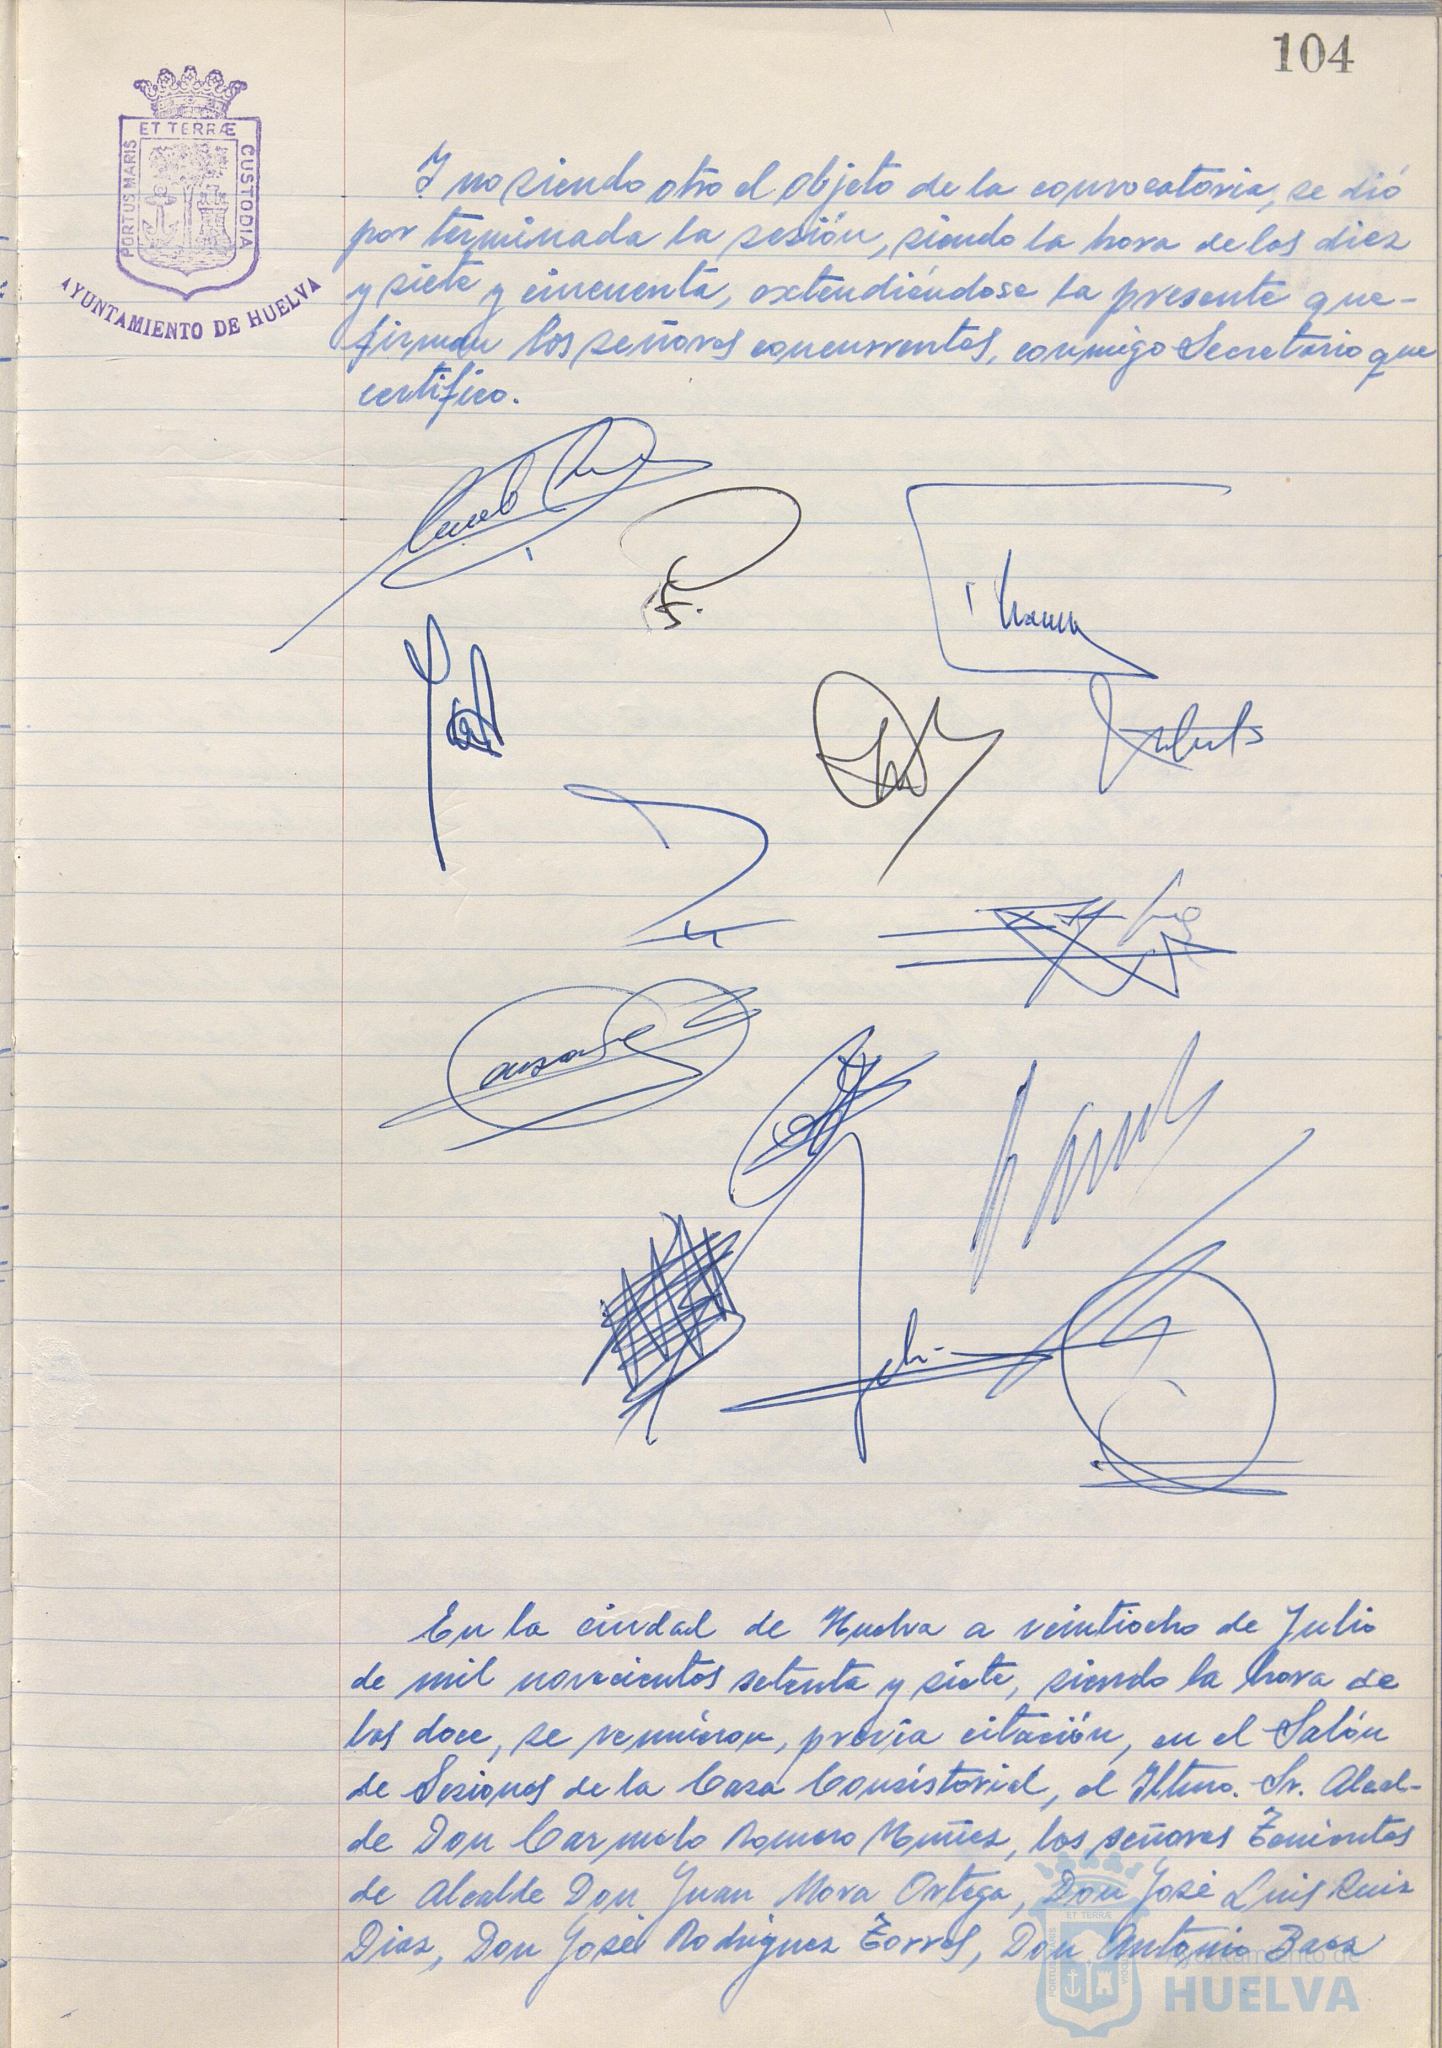 104
ET TERRÆ
PORTUS MARIS
CUSTODIA
AYUNTAMIENTO DE HUELVA
Y no siendo otro el objeto de la convocatoria, se dió
por terminada la sesión, siendo la hora de las diez
y siete y cincuenta, extendiéndose la presente que-
firman los señores concurrentes, conmigo Secretario que
certifico.
En la ciudad de Huelva a veintiocho de Julio
de mil novecientos setenta y siete, siendo la hora de
las doce, se reunieron, previa citación, en el Salón
de Sesiones de la Casa Consistorial, el Iltmo. Sr. Alcal-
de Don Carmelo Romero Muñoz, los señores Tenientes
de Alcalde Don Juan Mora Ortega, Don José Luis Ruiz
Diaz, Don José Rodriguez Torres, Don Antonio Baez
Ayuntamiento de
HUELVA